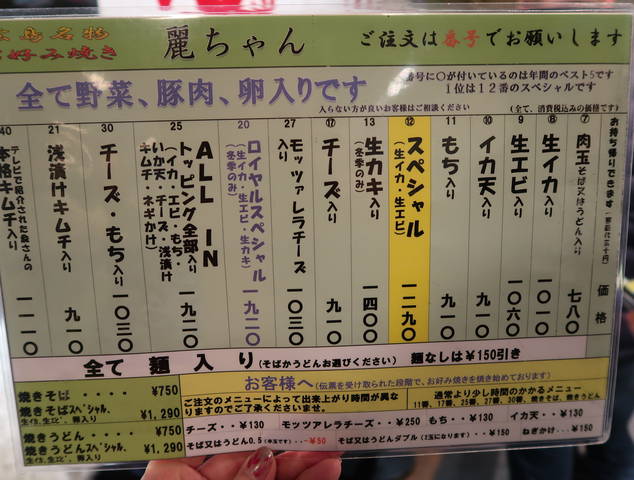 広島名物
お好み焼き
麗ちゃん
ご注文は番号でお願いします
全て野菜、豚肉、卵入りです
番号に〇が付いているのは年間のベスト5です
1位は12番のスペシャルです
入らない方が良いお客様はご相談ください
(全て、消費税込みの価格です)
お持ち帰りできます
価格
⑦
肉玉そば又はうどん入り
七八〇
⑧
生イカ入り
一〇一〇
⑨
生エビ入り
一〇六〇
⑩
イカ天入り
九一〇
11
もち入り
九一〇
⑫
スペシャル
(生イカ・生エビ)
一二九〇
13
生カキ入り
(冬季のみ)
一四〇〇
⑰
チーズ入り
九一〇
27
モッツァレラチーズ
入り
一〇三〇
20
ロイヤルスペシャル
(生イカ・生エビ・生カキ)
(冬季のみ)
一九二〇
25
ALL IN
トッピング全部入り
(イカ・エビ・もち・
いか天・チーズ・浅漬け
キムチ・ネギかけ)
一九二〇
30
チーズ・もち入り
一〇三〇
21
浅漬けキムチ入り
九一〇
40
テレビで紹介された奥さんの
本格キムチ入り
一一一〇
全て麺入り(そばかうどんお選びください) 麺なしは¥150引き
焼きそば・・・・ ¥750
焼きそばスペシャル. ¥1,290
生イカ,生エビ,卵入り
焼きうどん・・・・ ¥750
焼きうどんスペシャル. ¥1,290
生イカ,生エビ,卵入り
お客様へ(伝票を受け取られた段階で、お好み焼きを焼き始めております)
ご注文のメニューによって出来上がり時間が異な
りますのでご了承くださいませ。
通常より少し時間のかかるメニュー
11番、17番、25番、27番、30番、焼きそば、焼きうどん
チーズ・・¥130 モッツァレラチーズ・・・¥250 もち・・・¥130 イカ天・・¥130
そば又はうどん0.5(半玉です)・・・¥50 そば又はうどんダブル(2玉になります)・・・¥150 ねぎかけ・・・¥150